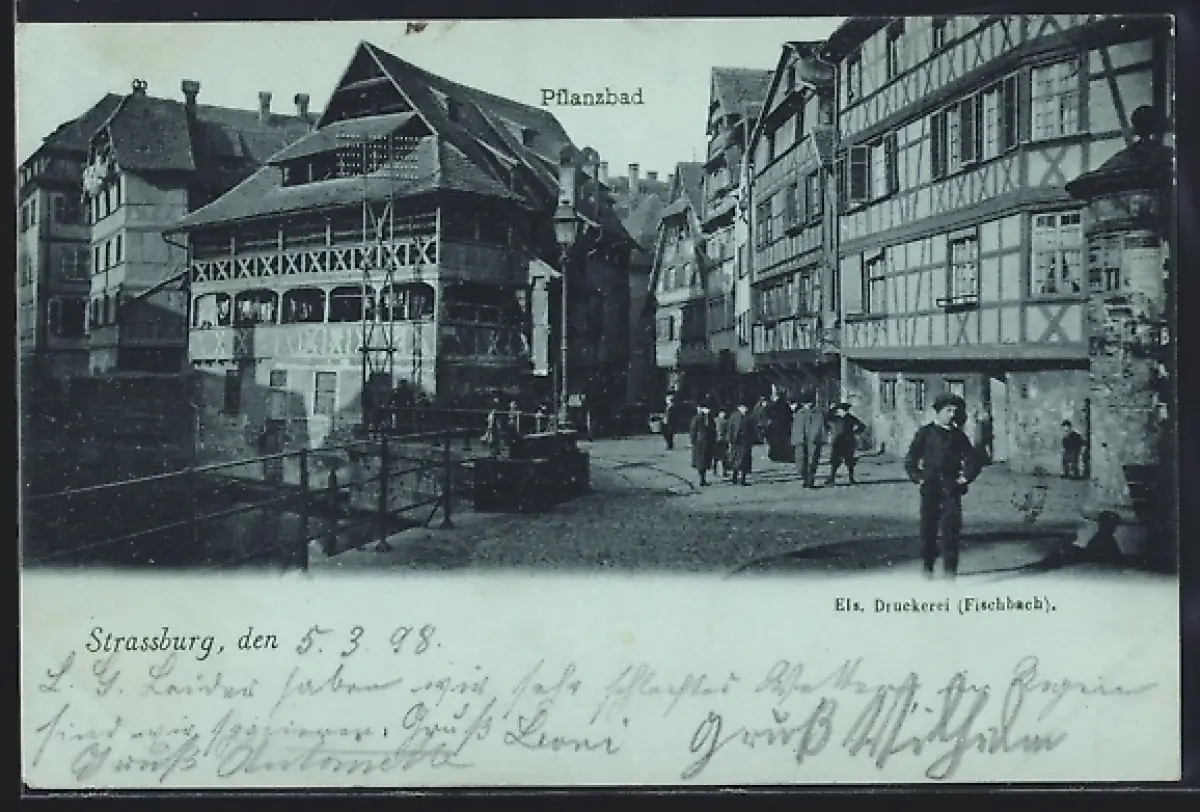 Pflanzbad
Els. Druckerei (Fischbach).
Strassburg, den 5. 3. 98.
L. G. Leider haben wir sehr schlechtes Wetter. Regen
sind wir spazieren. Gruß Leoni Gruß Wilhelm
Gruß Antoinette